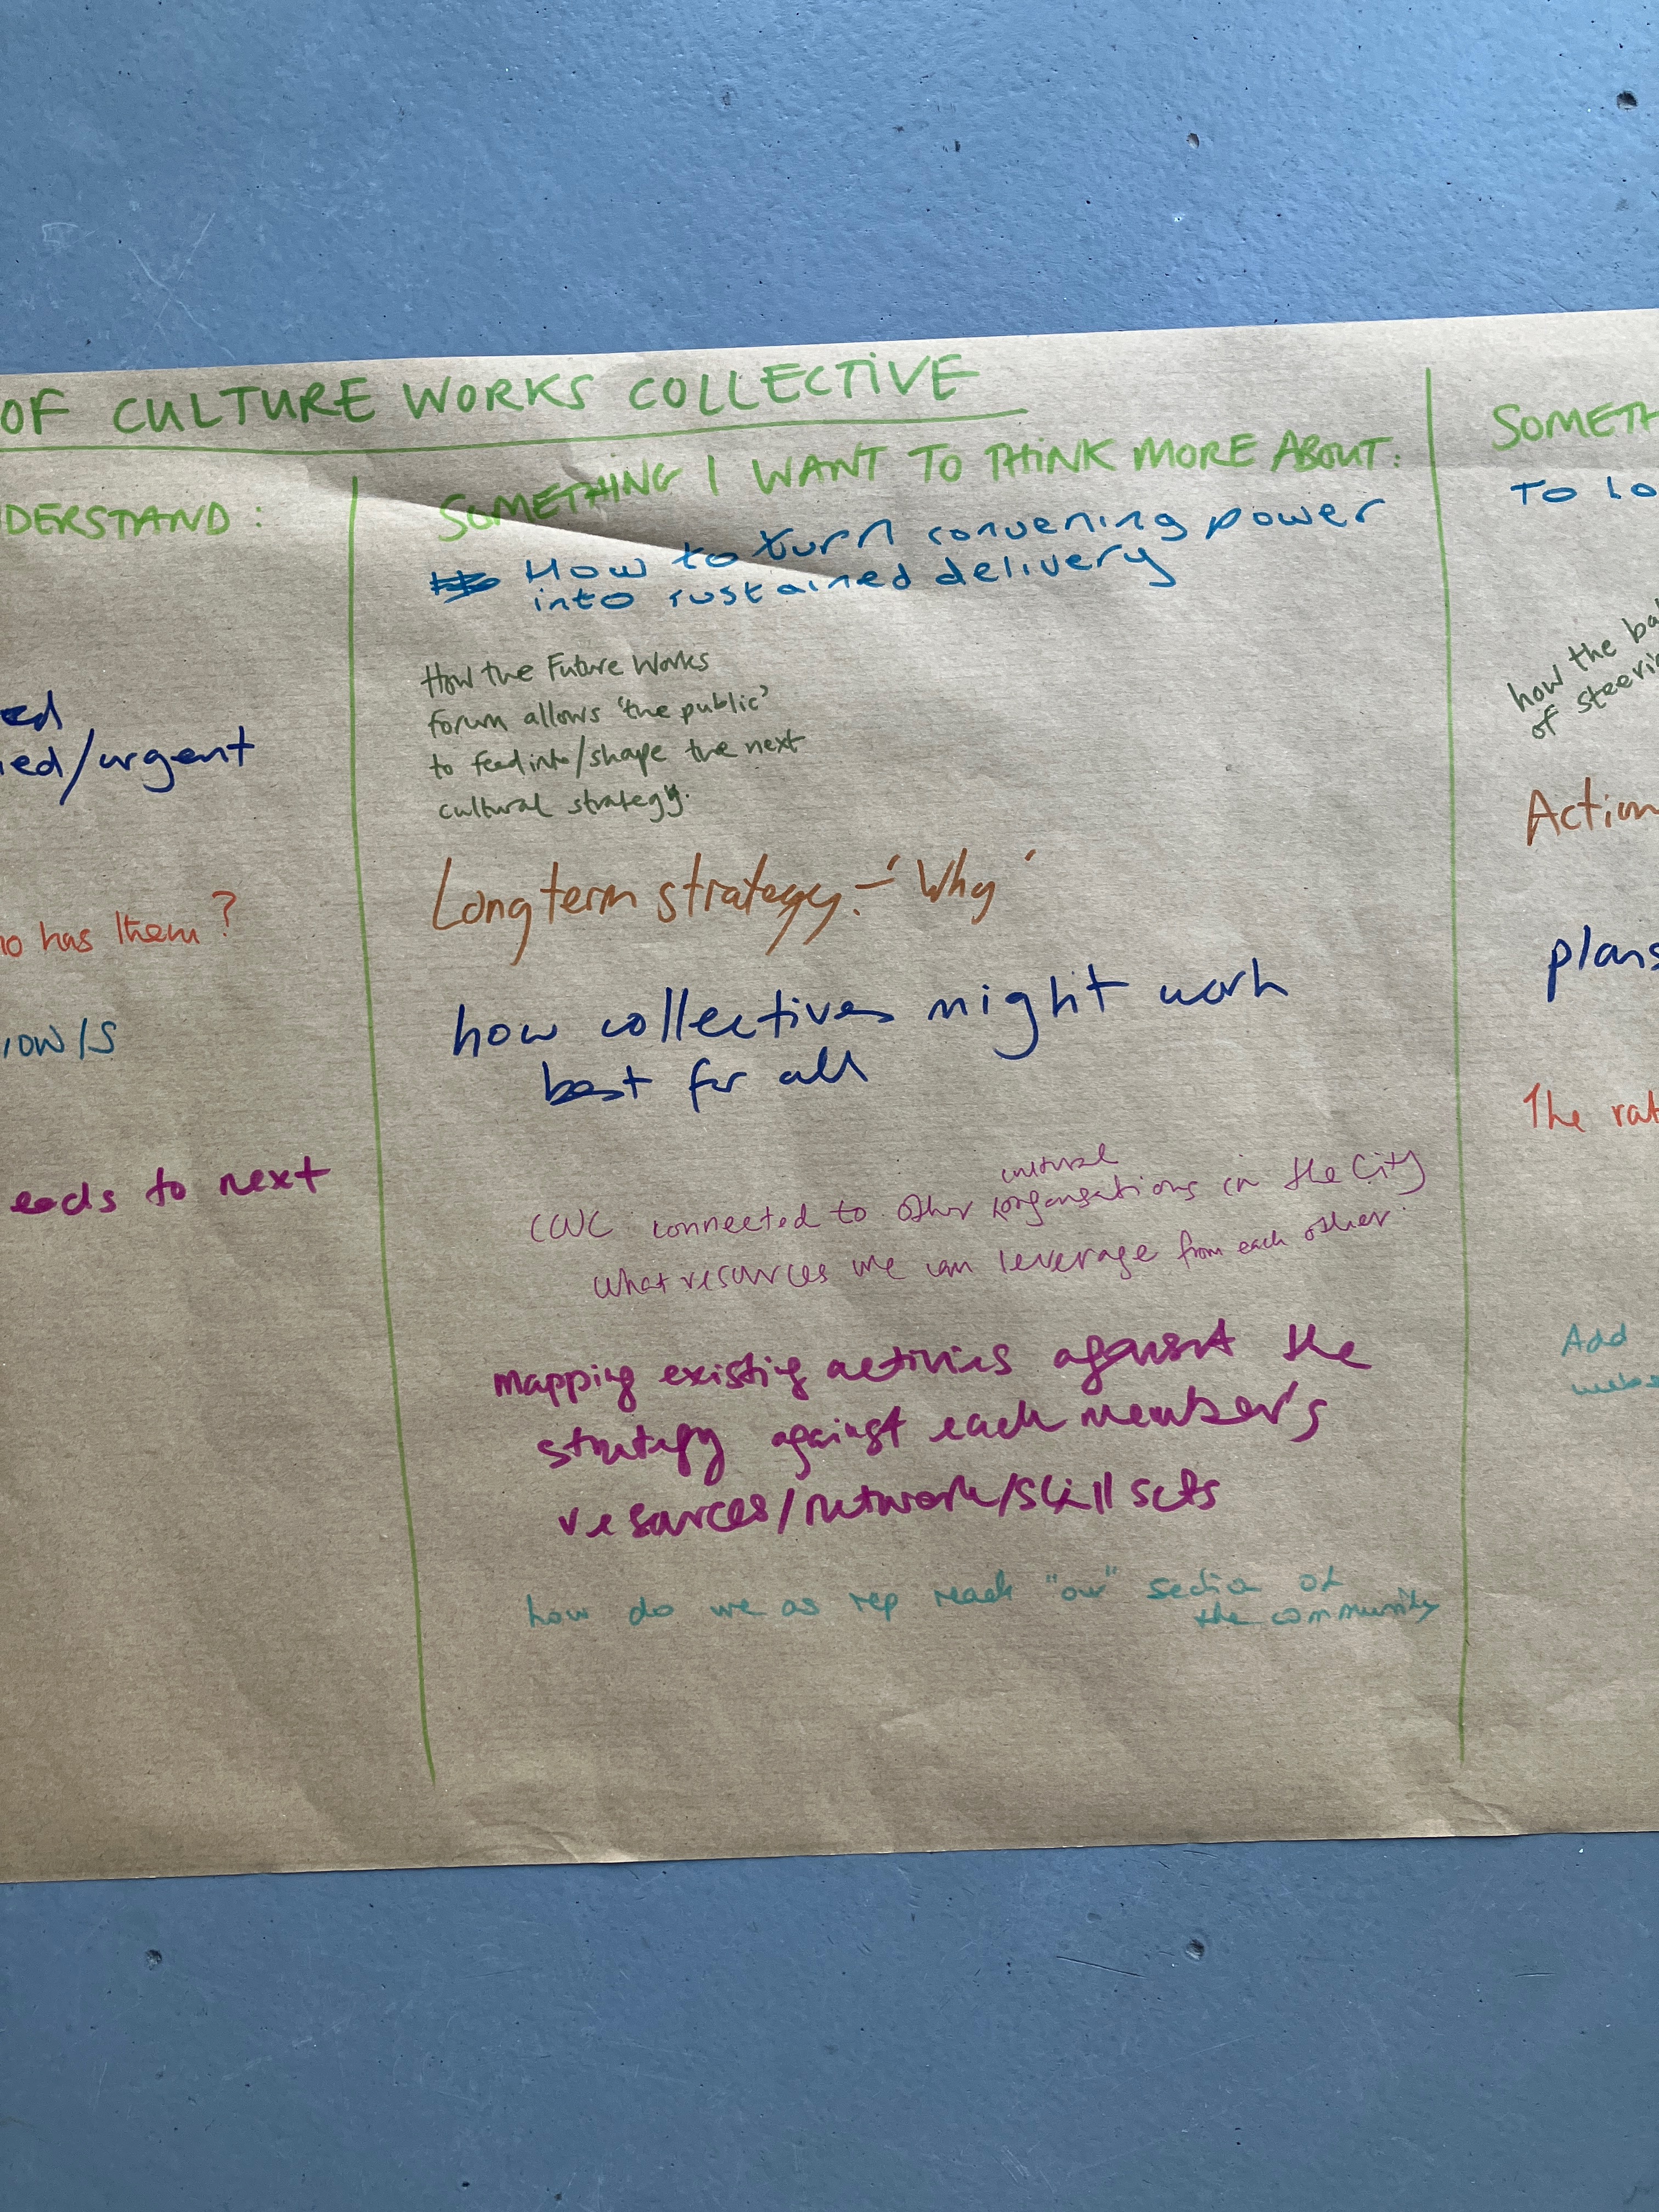 OF CULTURE WORKS COLLECTIVE
DERSTAND:
ed
ied/urgent
no has them?
now/s
eeds to next
SOMETHING I WANT TO THINK MORE ABOUT:
How to turn convening power
into sustained delivery
How the Future Works
forum allows 'the public'
to feed into/shape the next
cultural strategy.
Long term strategy. - 'Why'
how collectives might work
best for all
cultural
CWC connected to other organisations in the City
What resources we can leverage from each other.
mapping existing activities against the
strategy against each member's
resources/network/skill sets
how do we as rep reach "our" section of
the community
SOMETH
TO LO
how the ba
of steeri
Action
plans
The rat
Add
webs